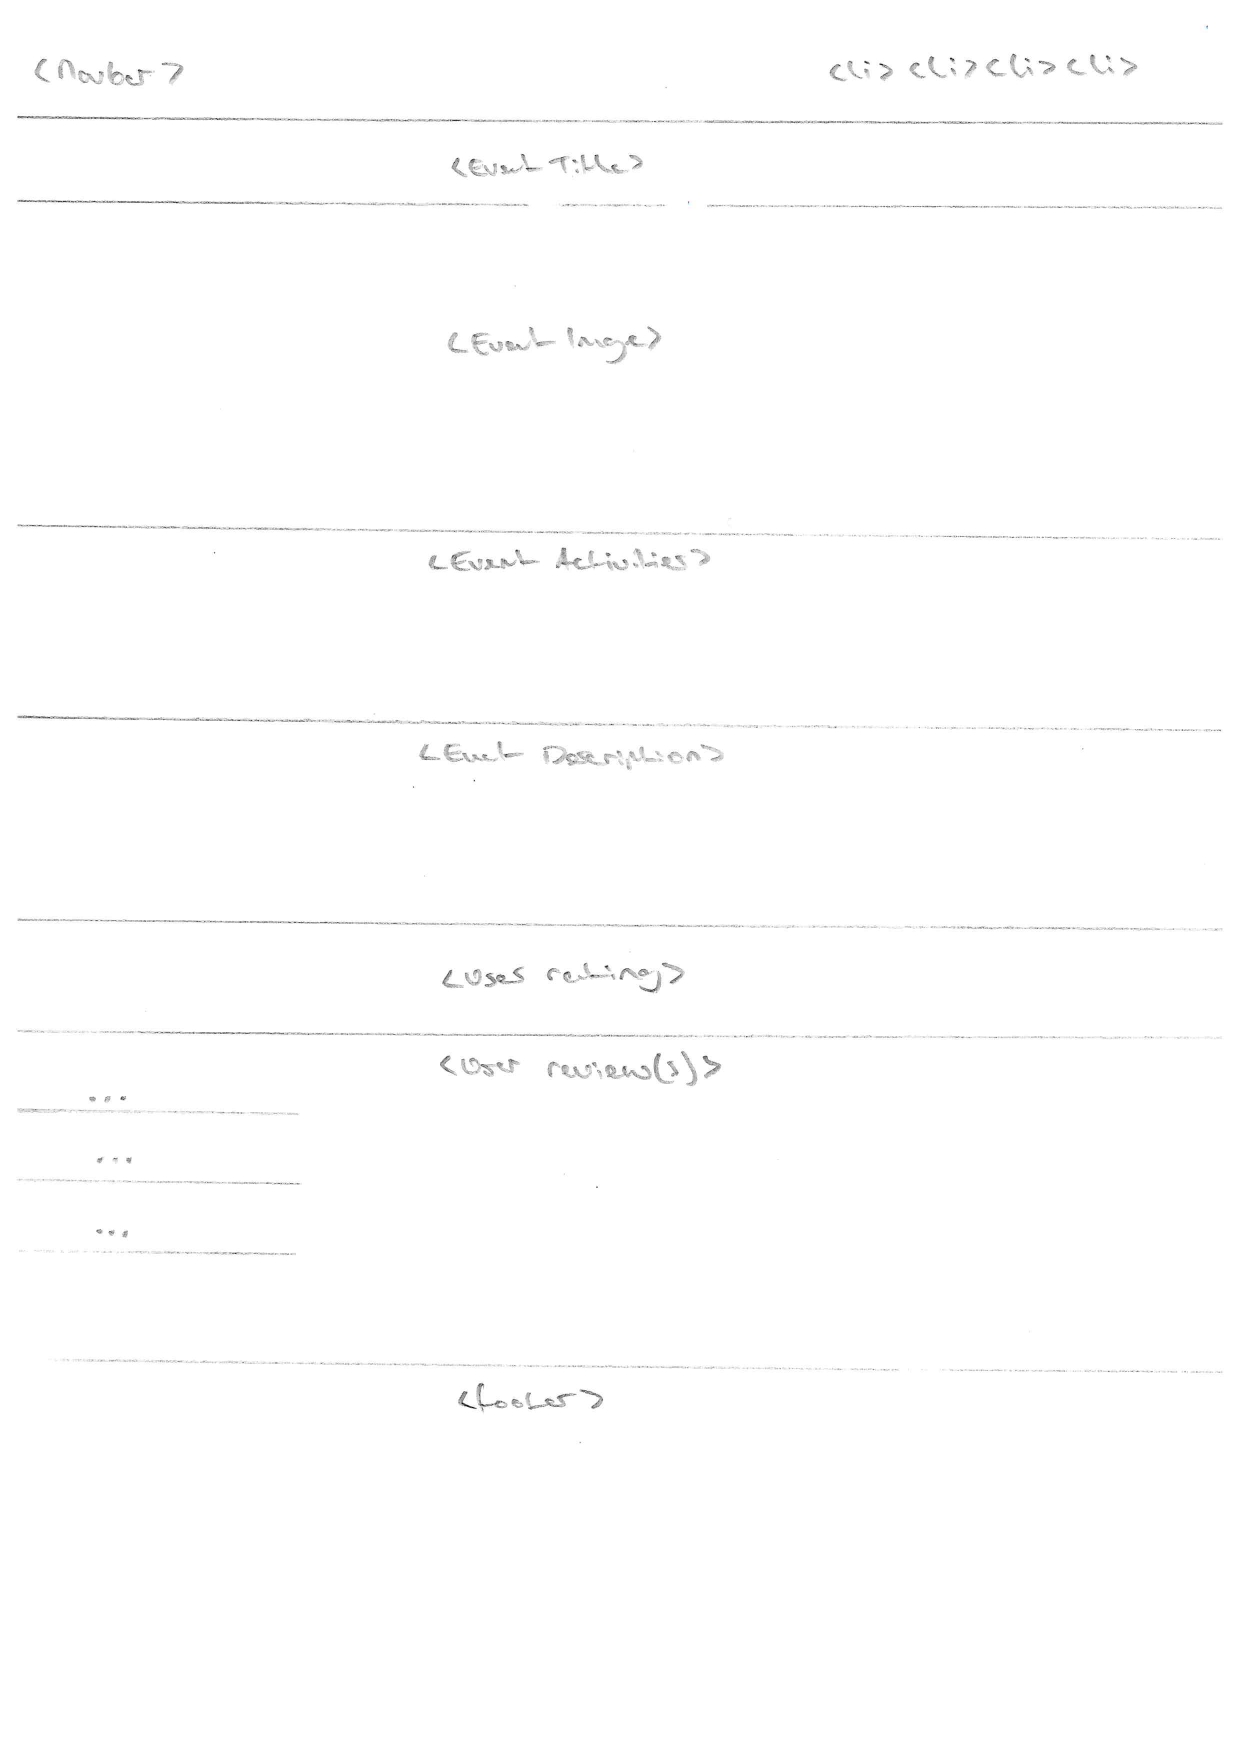 <Navbar> <li> <li> <li> <li>
<Event Title>
<Event Image>
<Event Activities>
<Event Description>
<User rating>
<User review(s)>
...
...
...
<footer>